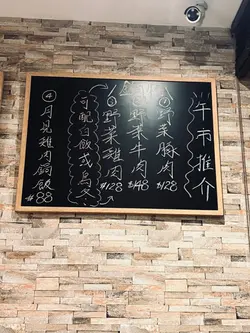 午市推介
①野菜豚肉 $128
②野菜牛肉 $148
③野菜雞肉 $128
可配白飯或烏冬
④月見雞肉鍋飯 $88